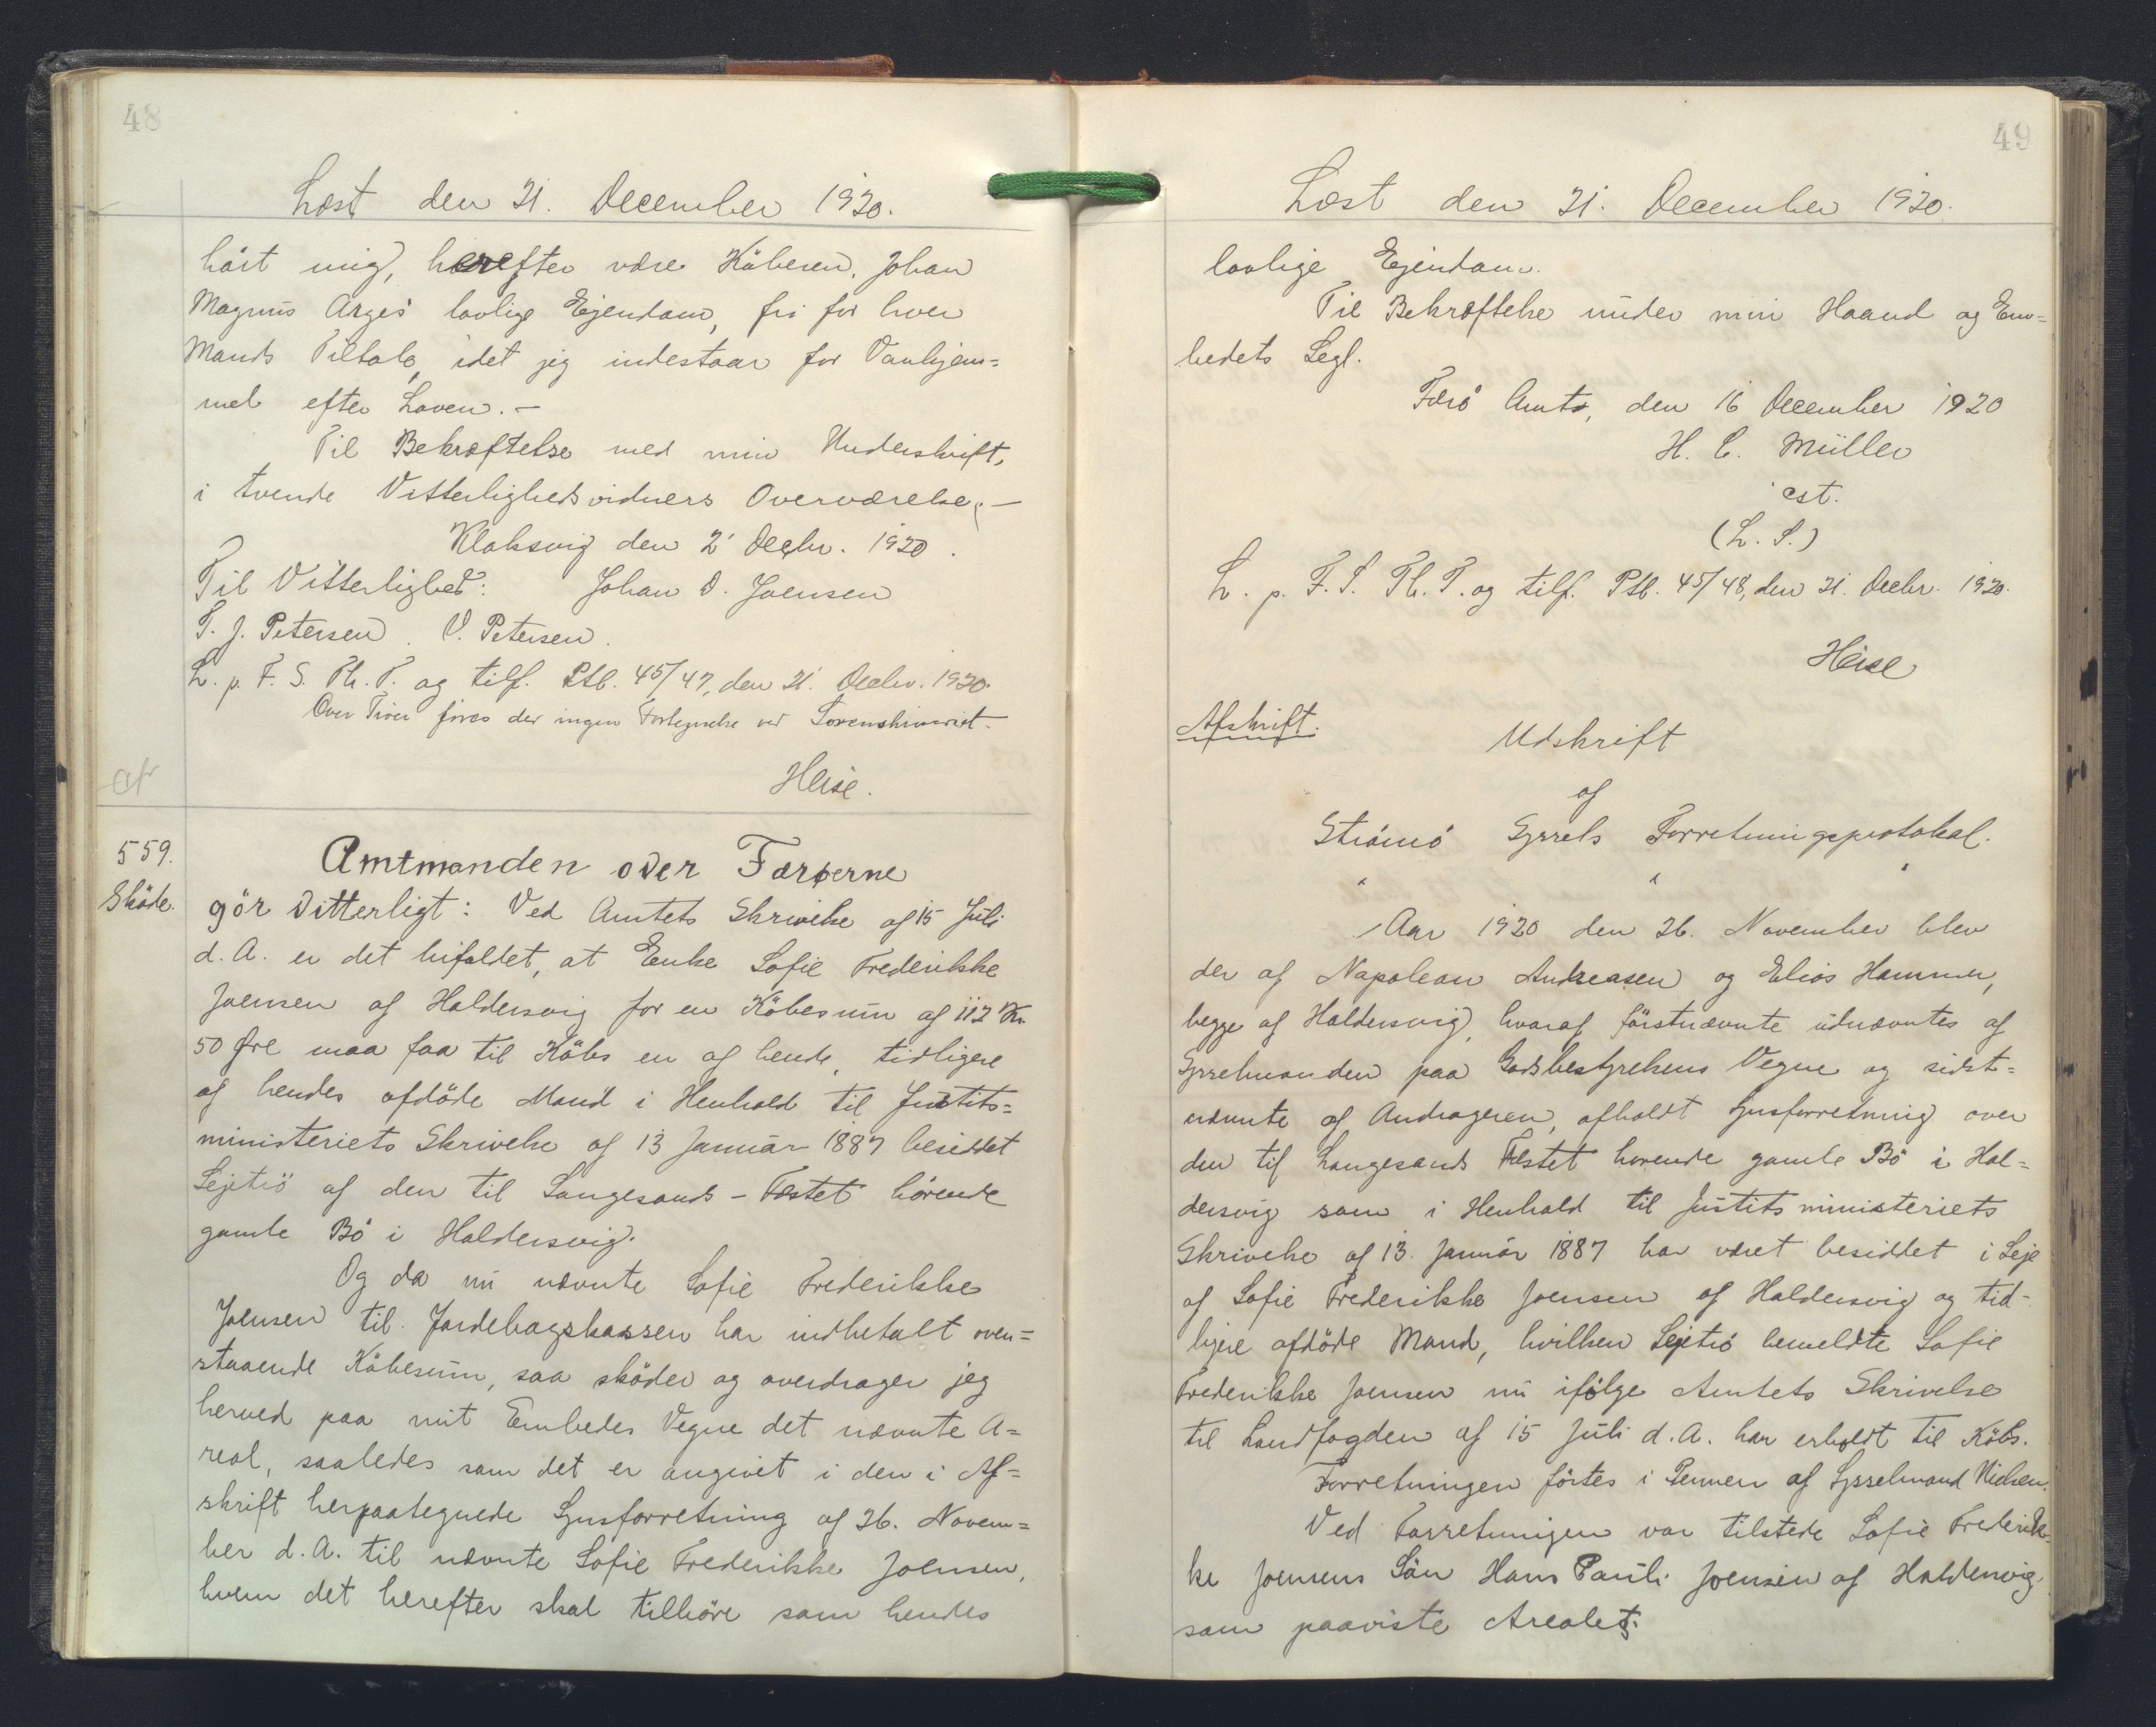 48
Læst den 21. December 1920.
hört mig, herefter være Köberen, Johan
Magnus Arge's lovlige Ejendom, fri for hver
Mands Tiltale, idet jeg indestaar for Vanhjem=
mel efter Loven.-
Til Bekræftelse med min Underskrift,
i tvende Vitterlighedsvidners Overværelse.-
Klaksvig den 2' Decbr. 1920.
Til Vitterlighed: Johan D. Joensen
T. J. Petersen. O. Petersen.
L. p. F. S. Th. T. og tilf. Ptb. 45/47, den 21. Decbr. 1920.
Over Tröer föres der ingen Fortegnelse ved Sorenskriveriet.
Heise.
559.
Sköde.
Amtmanden over Færøerne
gör Vitterligt: Ved Amtets Skrivelse af 15 Juli
d. A. er det bifaldet, at Enke Sofie Frederikke
Joensen af Haldersvig for en Köbesum af 112 Kr.
50 Øre maa faa til Köbs en af hende, tidligere
af hendes afdöde Mand i Henhold til Justits=
ministeriets Skrivelse af 13 Januar 1887 besiddet
Lejetrö af den til Langesands-Fæstet hörende
gamle Bö i Haldersvig.
Og da nu nævnte Sofie Frederikke
Joensen til Jordebogskassen har indbetalt oven=
staaende Köbesum, saa sköder og overdrager jeg
herved paa mit Embedes Vegne det nævnte A=
real, saaledes som det er angivet i den i Af=
skrift herpaategnede Synsforretning af 26. Novem=
ber d. A. til nævnte Sofie Frederikke Joensen,
hvem det herefter skal tilhöre som hendes
49
Læst den 21. December 1920.
lovlige Ejendom.
Til Bekræftelse under min Haand og Em=
bedets Segl.
Færö Amt, den 16 December 1920
H. C. Müller
cst.
(L. S.)
L. p. F. S. Th. T. og tilf. Ptb. 45/48, den 21. Decbr. 1920.
Heise
Afskrift.
Udskrift
af
Strömö Syssels Forretningsprotokol.
Aar 1920 den 26. November blev
der af Napoleon Andreasen og Elias Hammer,
begge af Haldersvig, hvoraf förstnævnte udnævntes af
Sysselmanden paa Godsbestyrelsens Vegne og sidst=
nævnte af Andrageren, afholdt Synsforretning over
den til Langesands Fæstet hörende gamle Bö i Hal=
dersvig som i Henhold til Justitsministeriets
Skrivelse af 13. Januar 1887 har været besiddet i Leje
af Sofie Frederikke Joensen af Haldersvig og tid-
ligere afdöde Mand, hvilken Lejetrö bemeldte Sofie
Frederikke Joensen nu ifölge Amtets Skrivelse
til Landfogden af 15 Juli d. A. har erholdt til Köbs.
Forretningen förtes i Pennen af Sysselmand Nielsen.
Ved Forretningen var tilstede Sofie Frederik-
ke Joensens Sön Hans Pauli Joensen af Haldersvig,
som paaviste Arealet.